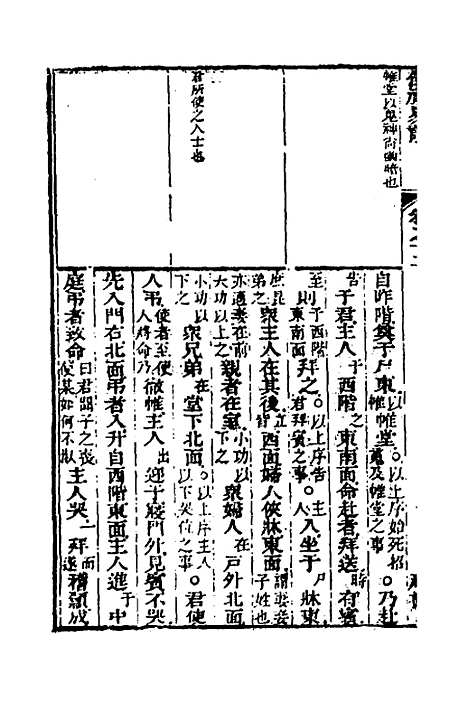 帷堂以鬼神尚幽暗也
君所使之人士也
自阼階奠于尸東帷堂。以上序始死招魂及帷堂之事。乃赴
告于君主人于西階之東南面命赴者拜送時有賓
至則于西階東南面拜之。以上序告君拜賓之事。人入坐于尸牀東
庶昆弟之眾主人在其後皆立西面婦人俠牀東面謂妻妾子姓也
亦適妻在前大功以上之親者在室小功以下之眾婦人在戶外北面
小功以下之眾兄弟在堂下北面。以上序主人以下哭位之事。君使
人弔使者至使人將命乃徹帷主人出迎于寢門外見賓不哭
先入門右北面弔者入升自西階東面主人進于中
庭弔者致命曰君聞子之喪使某如何不淑主人哭一拜而遂稽顙成